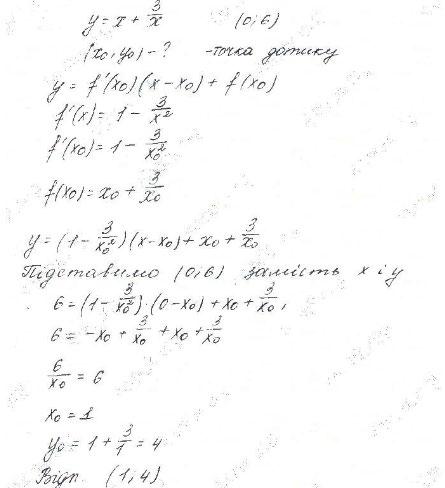 y = x + 3/x (0,6)
(x₀, y₀) - ? - точка дотику
y = f'(x₀)(x - x₀) + f(x₀)
f'(x) = 1 - 3/x²
f'(x₀) = 1 - 3/x₀²
f(x₀) = x₀ + 3/x₀
y = (1 - 3/x₀²)(x - x₀) + x₀ + 3/x₀
Підставимо (0,6) замість x і y
6 = (1 - 3/x₀²)·(0 - x₀) + x₀ + 3/x₀,
6 = -x₀ + 3/x₀ + x₀ + 3/x₀
6/x₀ = 6
x₀ = 1
y₀ = 1 + 3/1 = 4
Відп. (1,4)